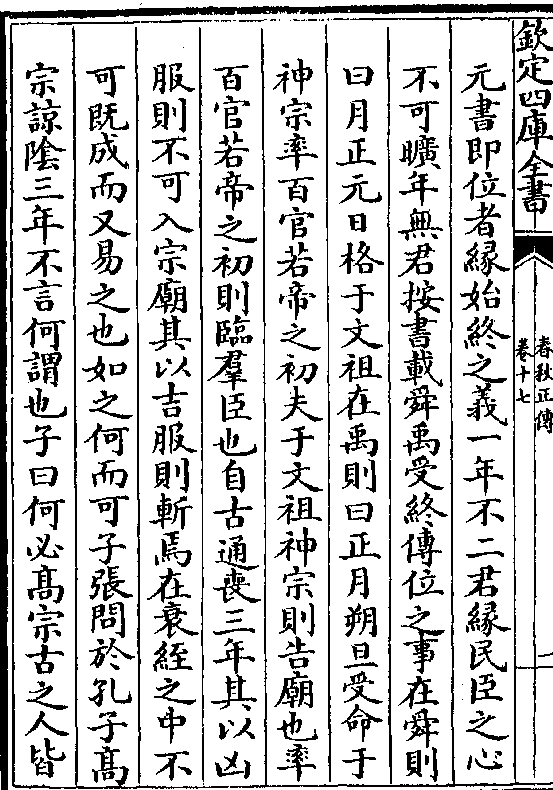 欽定四庫全書
春秋正傳
卷十七
元書即位者緣始終之義一年不二君緣民臣之心
不可曠年無君按書載舜禹受終傳位之事在舜則
曰月正元日格于文祖在禹則曰正月朔旦受命于
神宗率百官若帝之初夫于文祖神宗則告廟也率
百官若帝之初則臨羣臣也自古通喪三年其以凶
服則不可入宗廟其以吉服則斬焉在衰絰之中不
可既成而又易之也如之何而可子張問於孔子髙
宗諒陰三年不言何謂也子曰何必髙宗古之人皆